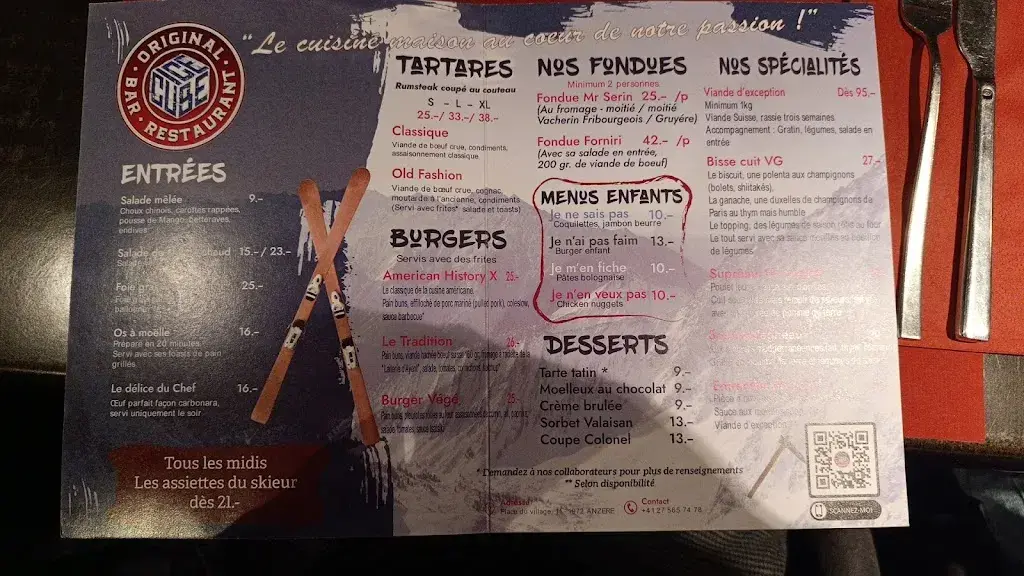 ORIGINAL
ICE
CUBE
BAR • RESTAURANT
"Le cuisine maison au coeur de notre passion !"
ENTRÉES
Salade mêlée 9.-
Choux chinois, carottes rappées,
pousse de Mango, betteraves,
endives
Salade 15.-/ 23.-
Foie 25.-
Os à moëlle 16.-
Préparé en 20 minutes
Servi avec ses toasts de pain
grillés.
Le délice du Chef 16.-
Œuf parfait façon carbonara,
servi uniquement le soir
Tous les midis
Les assiettes du skieur
dès 21.-
TARTARES
Rumsteak coupé au couteau
S - L - XL
25.-/ 33,-/ 38.-
Classique
Viande de bœuf crue, condiments,
assaisonnement classique
Old Fashion
Viande de bœuf crue, cognac,
moutarde à l'ancienne, condiments
(Servi avec frites* salade et toasts)
BURGERS
Servis avec des frites
American History X 25.-
Le classique de la cuisine américaine.
Pain buns, effiloché de porc mariné (pulled pork), coleslow,
sauce barbecue"
Le Tradition 26.-
Burger Végé 25.-
NOS FONDUES
Minimum 2 personnes
Fondue Mr Serin 25.- /p
(Au fromage - moitié / moitié
Vacherin Fribourgeois / Gruyère)
Fondue Forniri 42.- /p
(Avec sa salade en entrée,
200 gr. de viande de boeuf)
MENUS ENFANTS
Je ne sais pas 10.-
Coquilettes, jambon beurre
Je n'ai pas faim 13.-
Burger enfant
Je m'en fiche 10.-
Pâtes bolognaise
Je n'en veux pas 10.-
Chicken nuggets
DESSERTS
Tarte tatin * 9.-
Moelleux au chocolat 9.-
Crème brulée 9.-
Sorbet Valaisan 13.-
Coupe Colonel 13.-
NOS SPÉCIALITÉS
Viande d'exception Dès 95.-
Minimum 1kg
Viande Suisse, rassie trois semaines
Accompagnement : Gratin, légumes, salade en
entrée
Bisse cuit VG 27.-
Le biscuit, une polenta aux champignons
(bolets, shiitakés),
La ganache, une duxelles de champignons de
Paris au thym mais humble
Le topping, des légumes de saison
Le tout servi avec sa sauce
de légumes.
Viande d'exception
* Demandez à nos collaborateurs pour plus de renseignements
** Selon disponibilité
Adresse
Place du village, 1972 ANZERE
Contact
+41 27 565 74 78
SCANNEZ-MOI